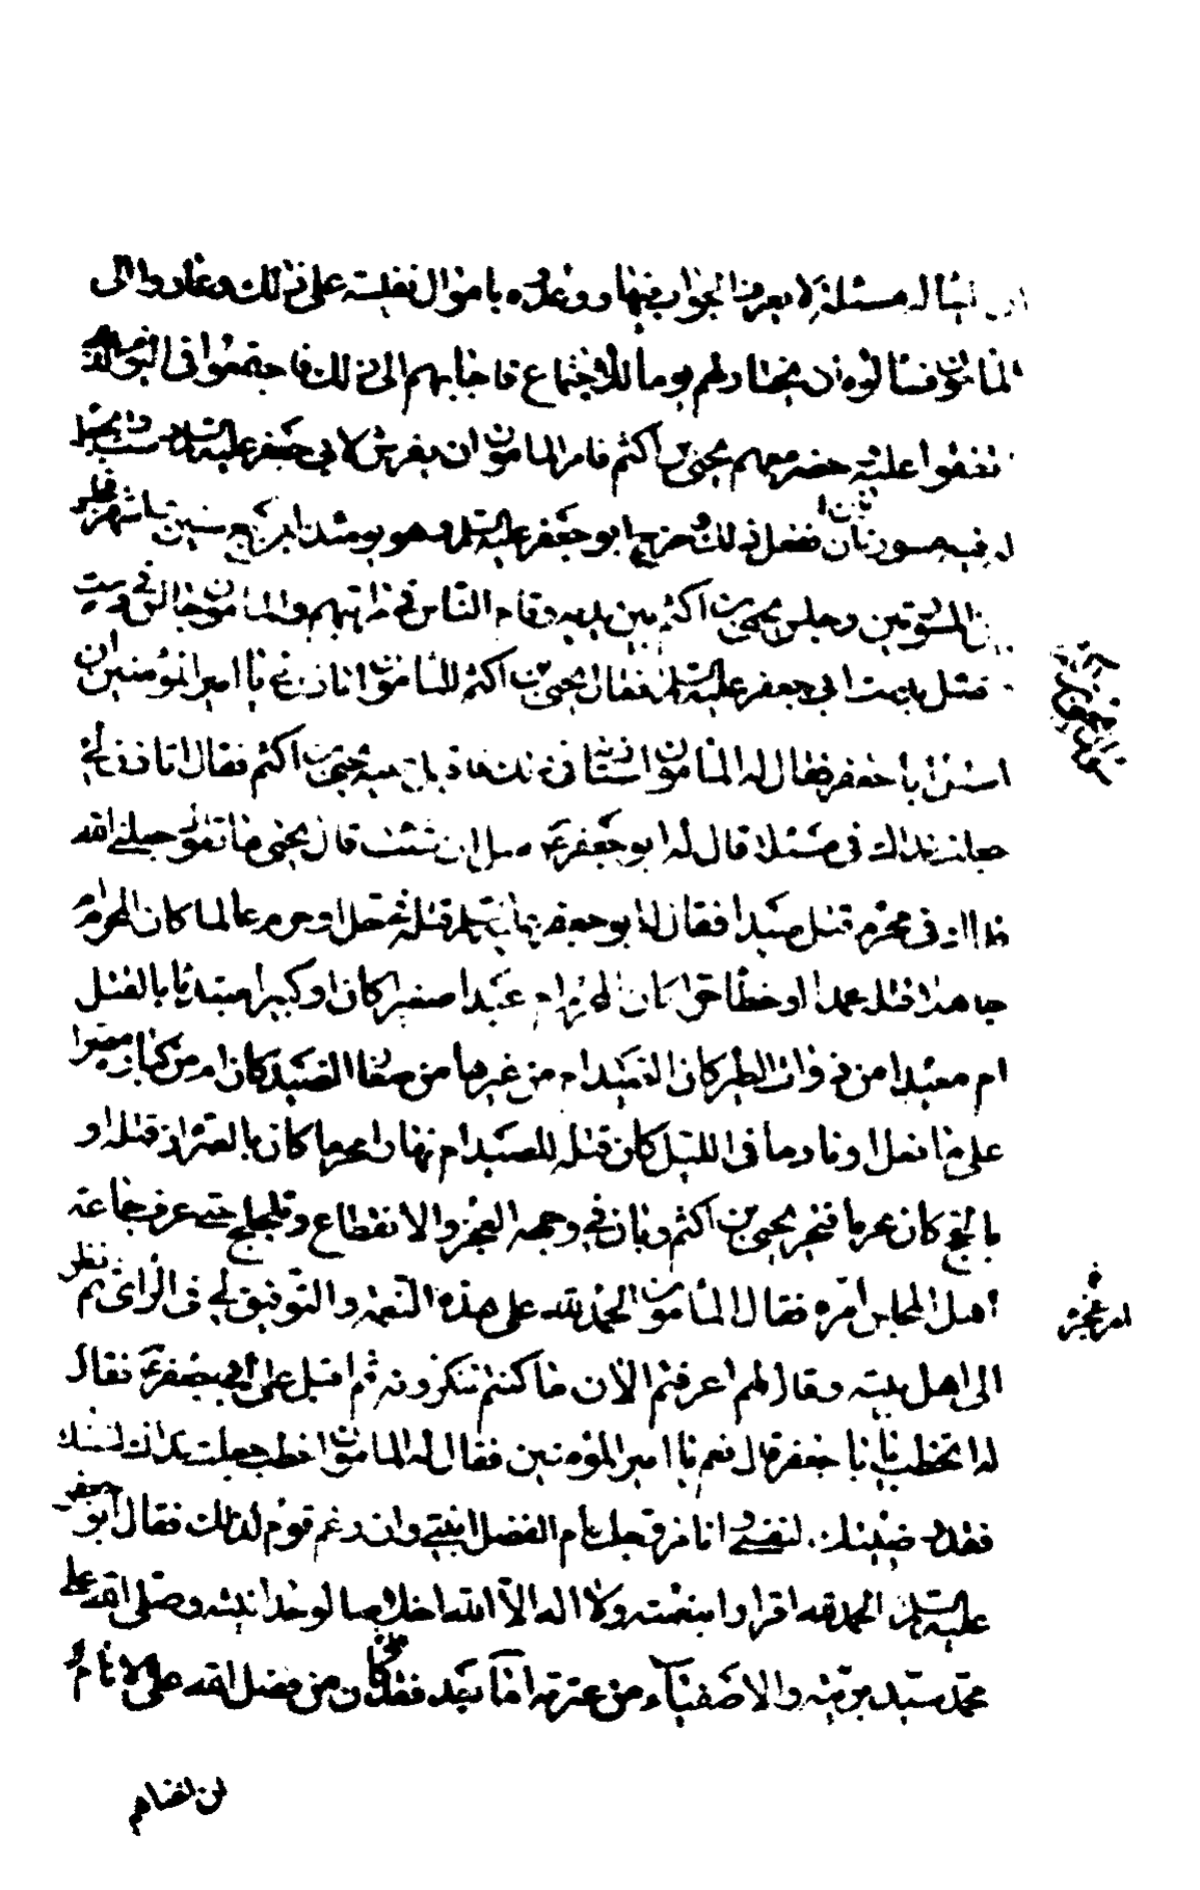 ان يسأله مسئلة لا يعرف الجواب فيها ووعدوه باموال نفيسة على ذلك وعادوا الى
المأمون فسألوه ان يختار لهم يوما للاجتماع فاجابهم الى ذلك فاجتمعوا في اليوم الذى
اتفقوا عليه حضر معهم يحيى بن اكثم فامر المامون ان يفرش لابي جعفر عليه السلام دست ويجعل
له فيه مسورتان ففعل ذلك وخرج ابو جعفر عليه السلم وهو يومئذ ابن تسع سنين واشهر فجلس
بين المسورتين وجلس يحيى بن اكثم بين يديه وقام الناس في مراتبهم والمامون جالس في دست
متصل بدست ابي جعفر عليه السلم فقال يحيى بن اكثم للمامون اتاذن لي يا امير المؤمنين ان
اسئل ابا جعفر فقال له المامون استاذنه في ذلك فاقبل عليه يحيى بن اكثم فقال اتاذن لي
جعلت فداك في مسئلة قال له ابو جعفر ع سل ان شئت قال يحيى ما تقول جعلني الله
فداك في محرم قتل صيدا فقال له ابو جعفر عليه السلم قتله في حل او حرم عالما كان المحرم ام
جاهلا قتله عمدا او خطأ حرا كان المحرم ام عبدا صغيرا كان او كبيرا مبتديا بالقتل
ام معيدا من ذوات الطير كان الصيد ام من غيرها من صغار الصيد كان ام من كبار مصرا
على ما فعل او نادما في الليل كان قتله للصيد ام نهارا محرما كان بالعمرة اذ قتله او
بالحج كان محرما فتحير يحيى بن اكثم وبان في وجهه العجز والانقطاع وتلجلج حتى عرف جماعة
اهل المجلس امره فقال المأمون الحمد لله على هذه النعمة والتوفيق لي في الرأى ثم نظر
الى اهل بيته وقال لهم اعرفتم الان ما كنتم تنكرونه ثم اقبل على ابي جعفر ع فقال
له اتخطب يا ابا جعفر قال نعم يا امير المؤمنين فقال له المامون اخطب جعلت فداك لنفسك
فقد رضيتك لنفسي وانا مزوجك ام الفضل ابنتي وان رغم قوم لذلك فقال ابو جعفر
عليه السلم الحمد لله اقرارا بنعمته ولا اله الا الله اخلاصا لوحدانيته وصلى الله على
محمد سيد بريته والاصفياء من عترته اما بعد فقد كان من فضل الله على الانام
ان اغناهم